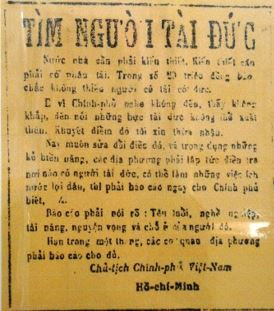 TÌM NGƯỜI TÀI ĐỨC
Nước nhà cần phải kiến thiết. Kiến thiết cần
phải có nhân tài. Trong số 20 triệu đồng bào
chắc không thiếu người có tài có đức.
E vì Chính-phủ nghe không đến, thấy không
khắp, đến nỗi những bực tài đức không thể xuất
thân. Khuyết điểm đó tôi xin thừa nhận.
Nay muốn sửa đổi điều đó, và trọng dụng những
kẻ hiền năng, các địa phương phải lập tức điều tra
nơi nào có người tài đức, có thể làm những việc ích
nước lợi dân, thì phải báo cáo ngay cho Chính phủ
biết,
Báo cáo phải nói rõ : Tên tuổi, nghề nghiệp,
tài năng, nguyện vọng và chỗ ở của người đó.
Hạn trong một tháng, các cơ quan địa phương
phải báo cáo cho đủ.
Chủ-tịch Chính-phủ Việt-Nam
Hồ-chí-Minh